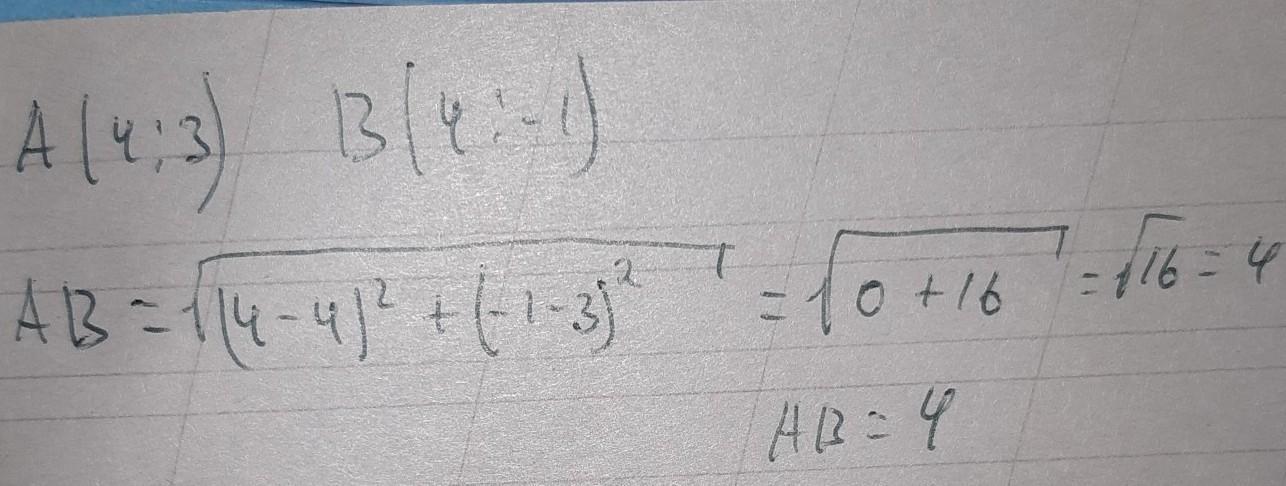 A(4;3) B(4;-1)
AB = √(4-4)² + (-1-3)² = √0+16 = √16 = 4
AB = 4